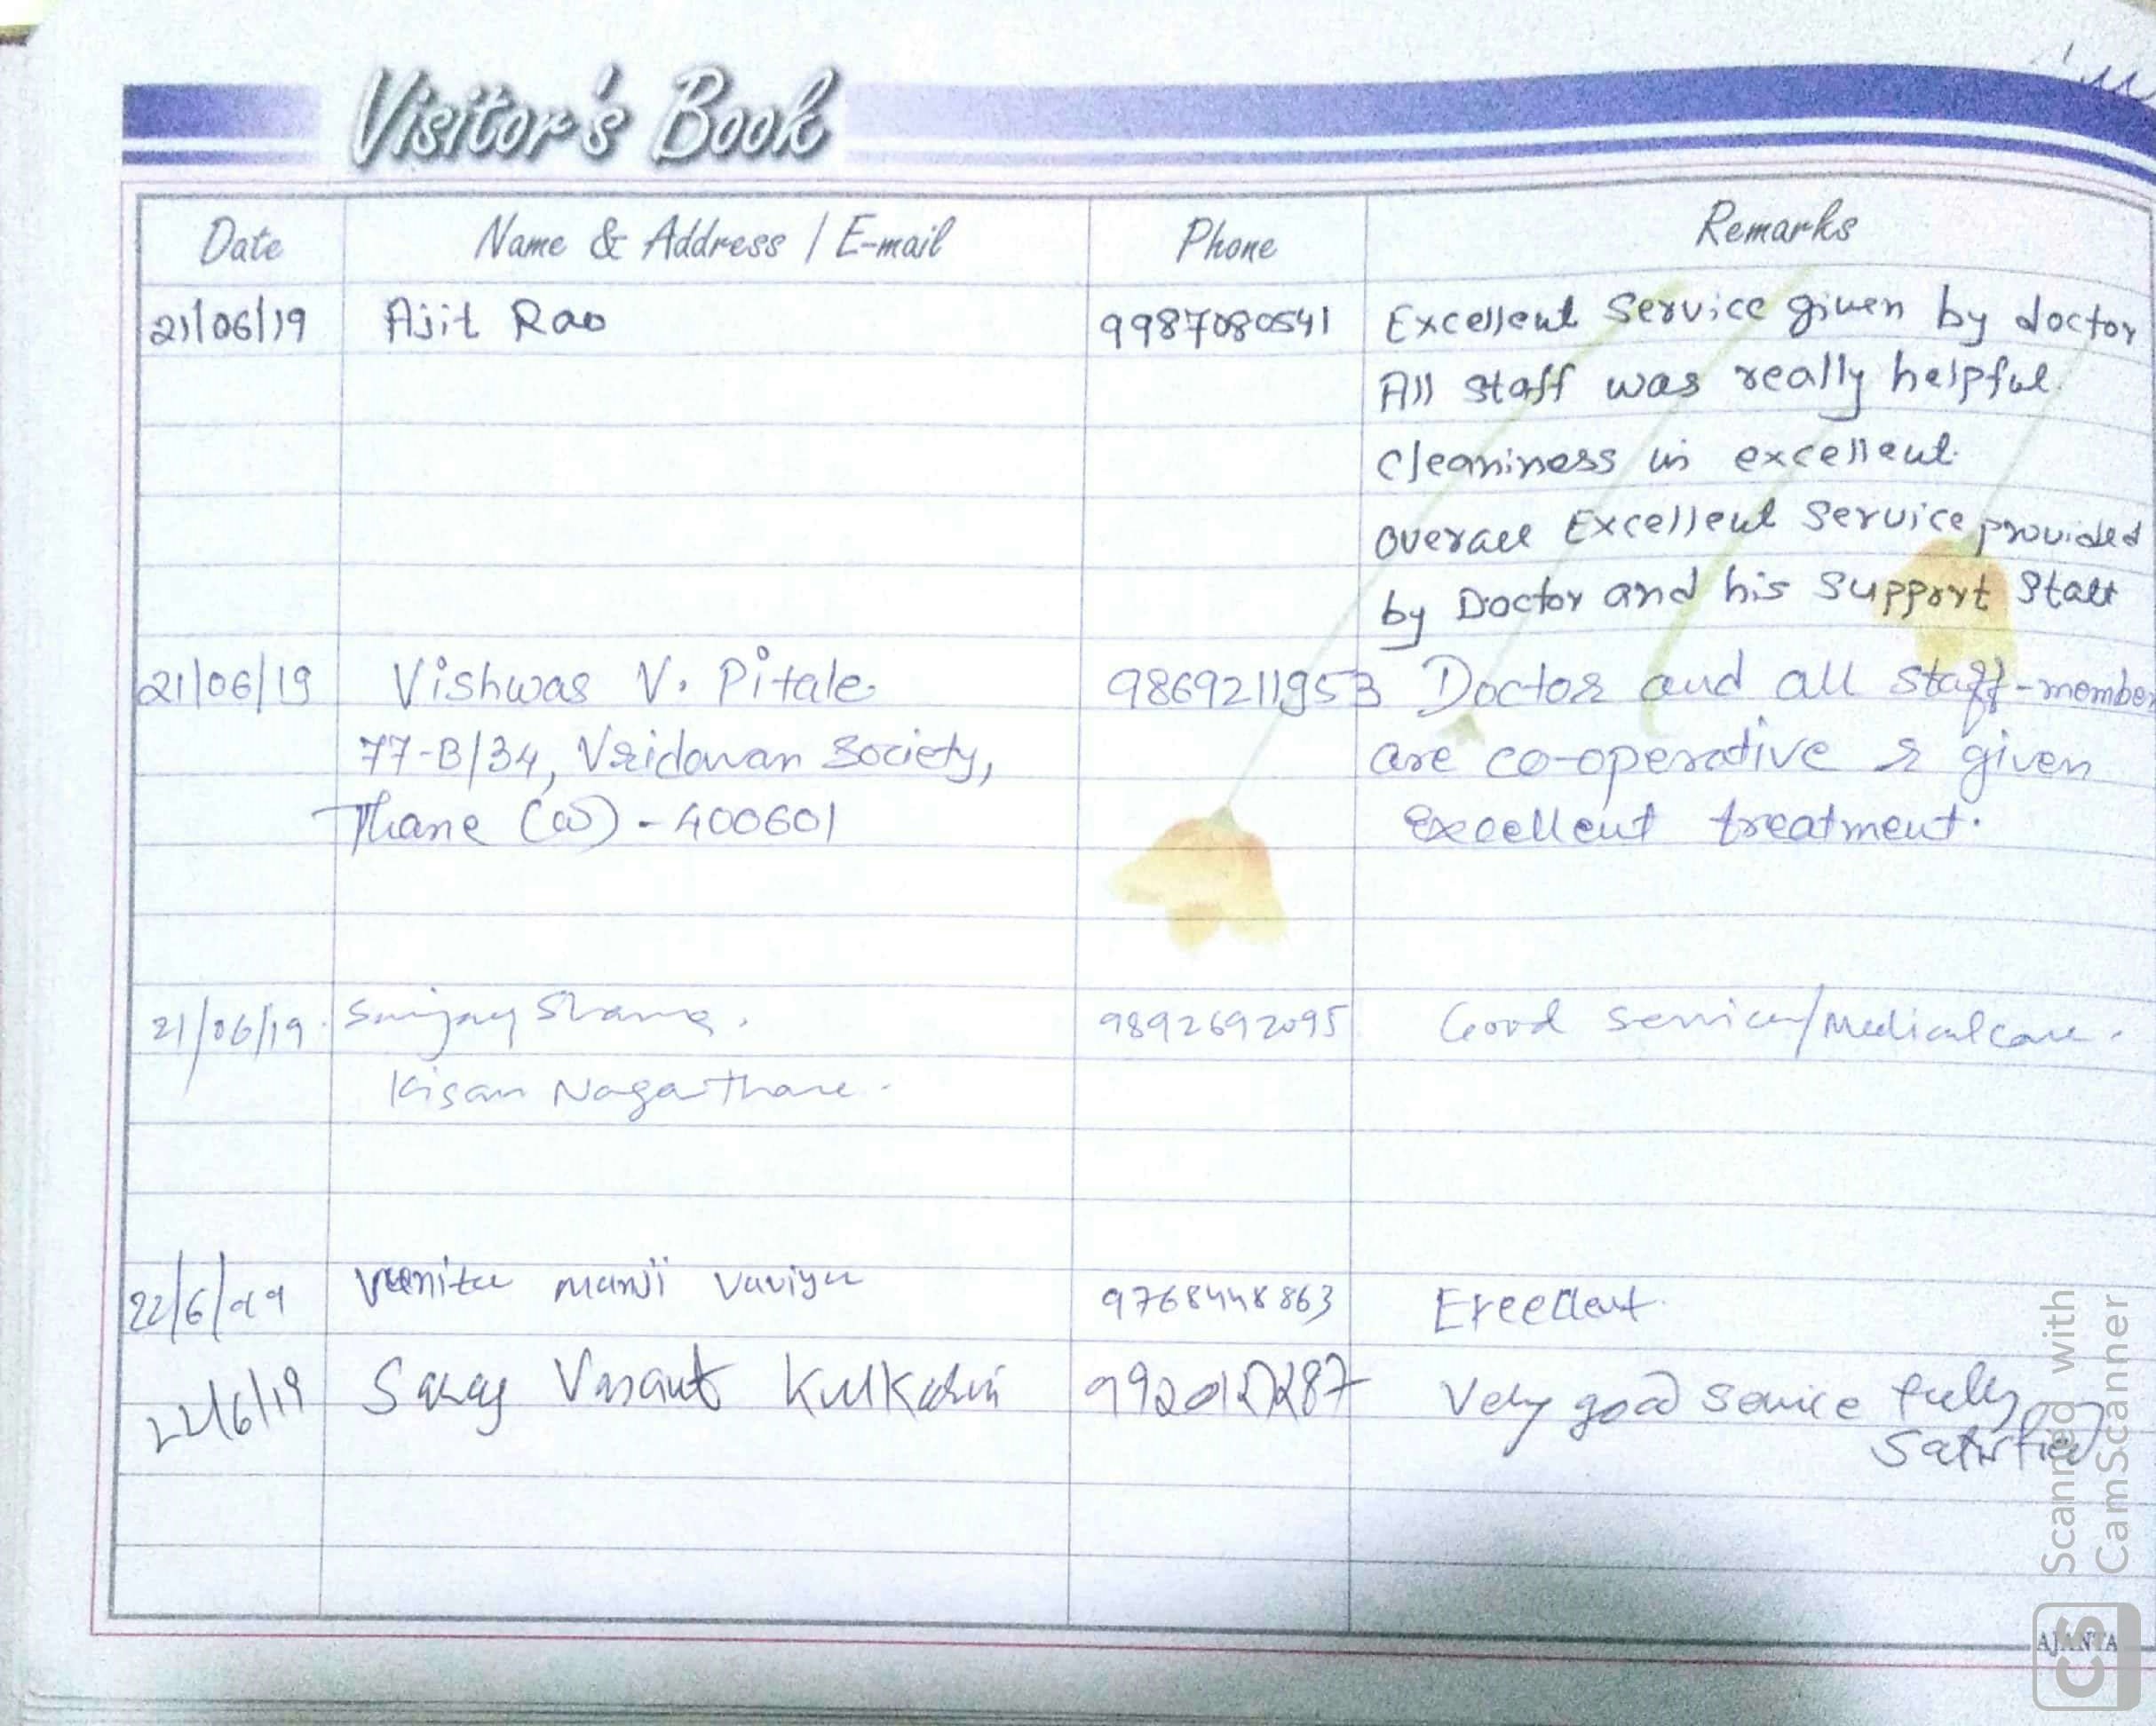 Visitor's Book
Date Name & Address / E-mail Phone Remarks
21/06/19 Ajit Rao 9987080541 Excellent Service given by doctor
All staff was really helpful.
Cleaniness is excellent.
overall Excellent Service provided
by Doctor and his Support Staff
21/06/19 Vishwas V. Pitale 9869211953 Doctor and all staff-member
77-B/34, Vridavan Society, are co-operative & given
Thane (W) - 400601 excellent treatment.
21/06/19. Sanjay Sharma. 9892692095 Good service/Medical care.
Kisan Nagar Thane.
22/6/19 manji 9768448863 Excellent.
22/6/19 Vasant Kulkarni Very good service fully
satisfied
Scanned with
CamScanner
CS
AJANTA